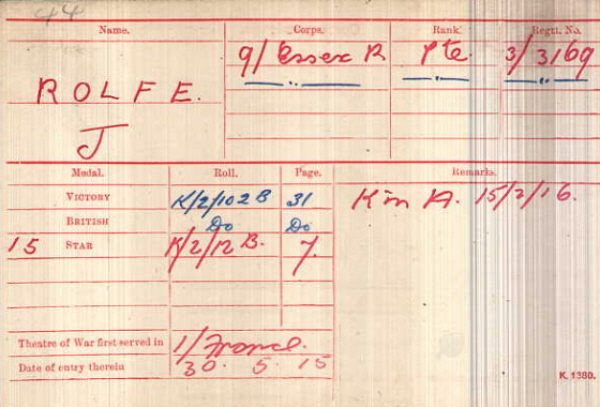 44
Name. Corps. Rank. Regtl. No.
9/ Essex R Pte 3/3169
ROLFE.
J
Medal. Roll. Page. Remarks.
VICTORY K/2/102 B 31 K in A. 15/2/16.
BRITISH Do Do
15 STAR K/2/12 B. 7.
Theatre of War first served in 1/ France.
Date of entry therein 30. 5. 15
K. 1380.